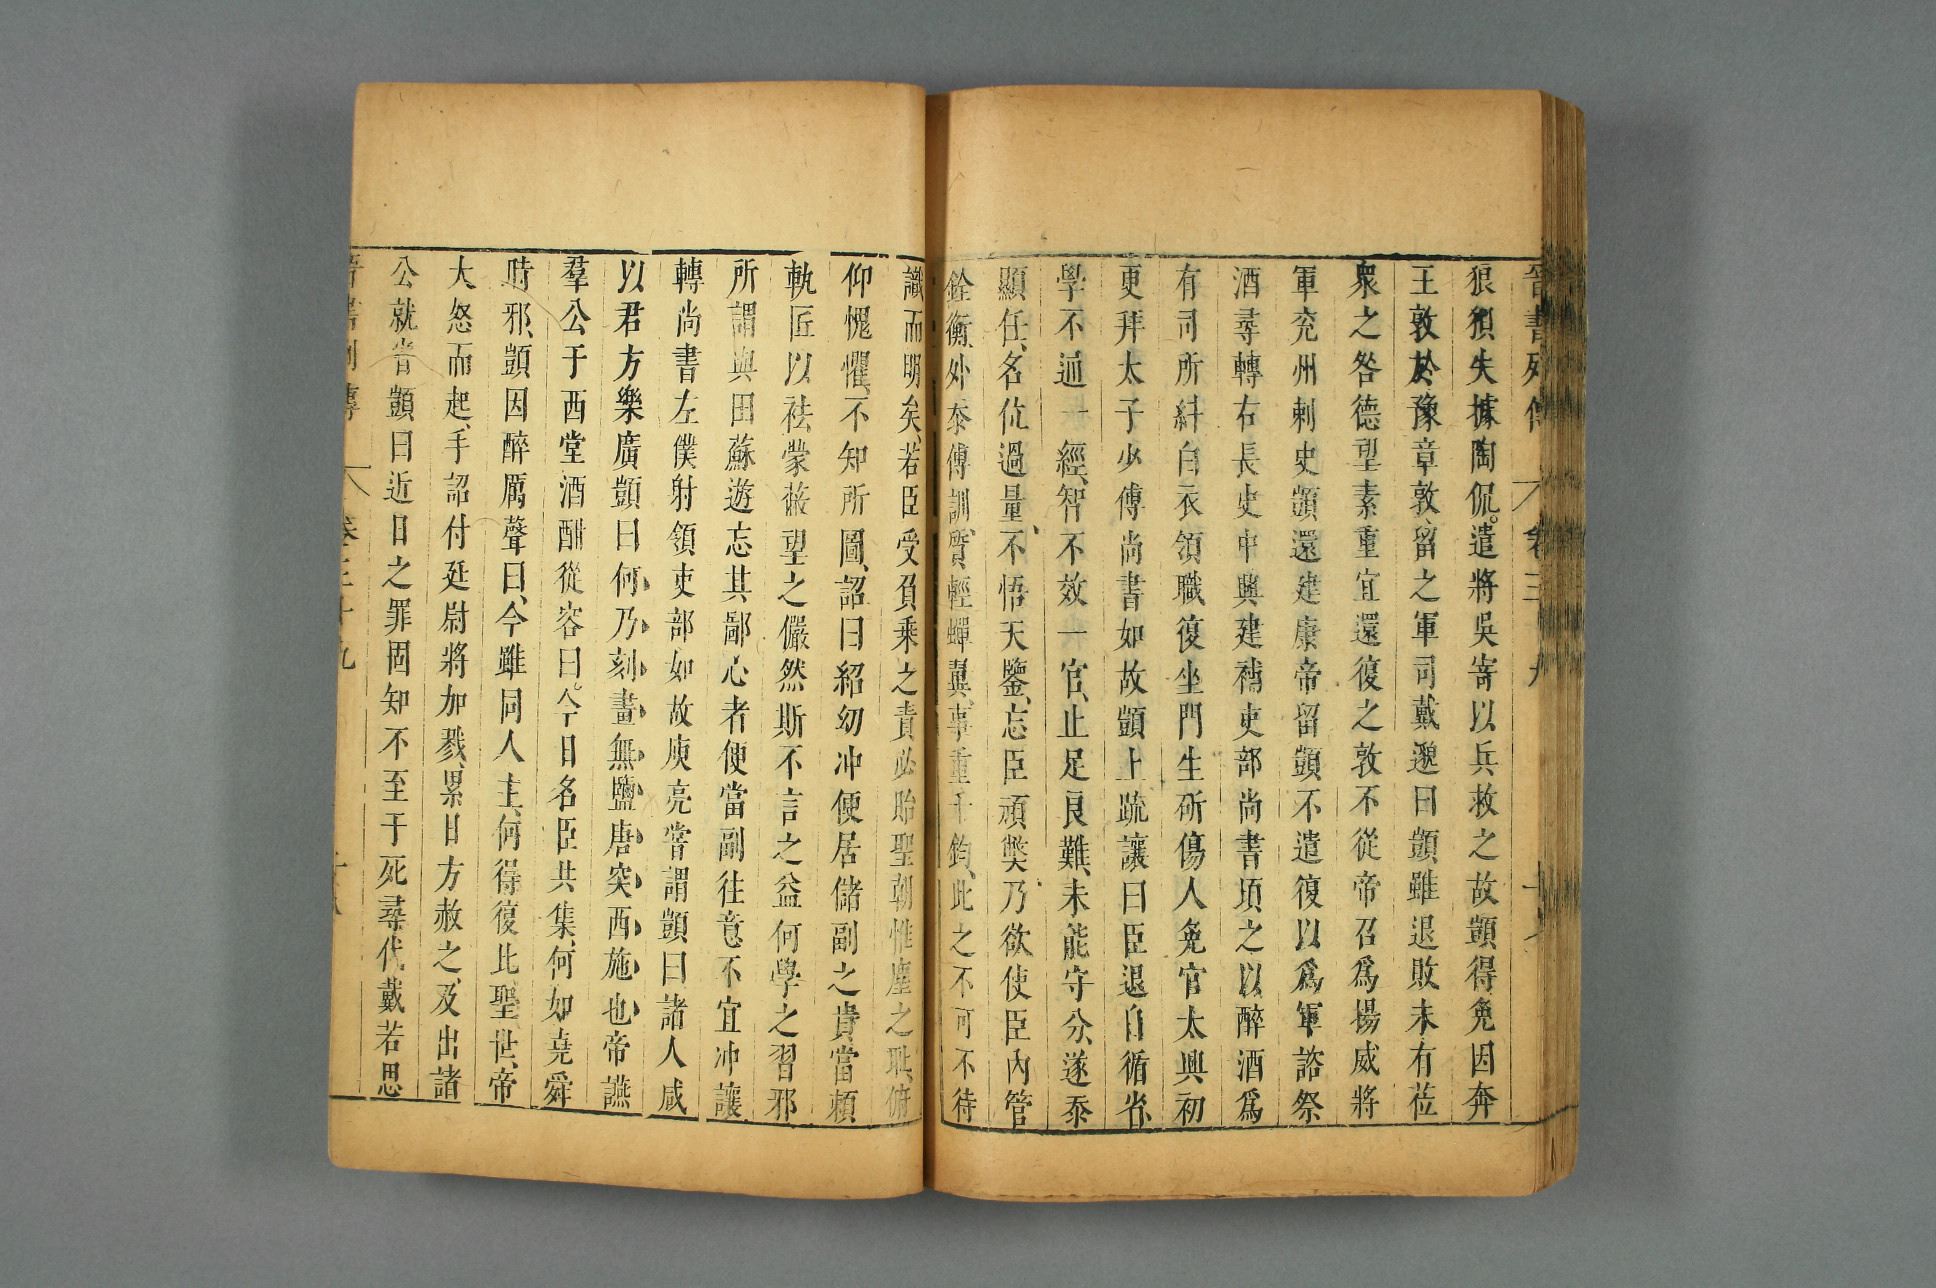 晉書列傳 卷三十九
狼狽失據陶侃遣將吳寄以兵救之故顗得免因奔
王敦於豫章敦留之軍司戴邈曰顗雖退敗未有莅
衆之咎德望素重宜還復之敦不從帝召爲揚威將
軍兗州刺史顗還建康帝留顗不遣復以爲軍諮祭
酒尋轉右長史中興建補吏部尚書頃之以醉酒爲
有司所糾白衣領職復坐門生斫傷人免官太興初
更拜太子少傅尚書如故顗上疏讓曰臣退自循省、
學不通一經、智不效一官、止足良難、未能守分、遂忝
顯任、名位過量、不悟天鑒、忘臣頑弊、乃欲使臣內管
銓衡、外忝傅訓、質輕蟬翼、事重千鈞、此之不可不待
識而明矣、若臣受負乘之責必貽聖朝惟塵之耻、俯
仰愧懼、不知所圖、詔曰紹幼沖便居儲副之貴當賴
軌匠以祛蒙蔽望之儼然斯不言之益何學之習邪
所謂與田蘇遊忘其鄙心者便當副往意不宜沖讓
轉尚書左僕射領吏部如故庾亮嘗謂顗曰諸人咸
以君方樂廣顗曰何乃刻畫無鹽唐突西施也帝讌
羣公于西堂酒酣從容曰今日名臣共集、何如堯舜
時邪、顗因醉厲聲曰、今雖同人主、何得復比聖世、帝
大怒而起、手詔付廷尉將加戮、累日方赦之、及出諸
公就省顗曰近日之罪固知不至于死尋代戴若思
晉書列傳 卷三十九 十八